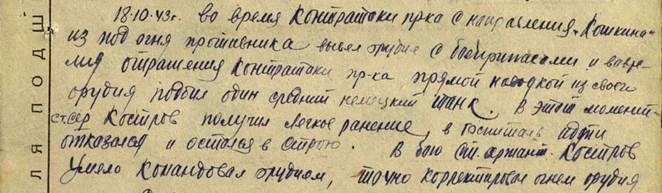 18.10.43г. во время контратаки пр-ка с направления „Кошкина"
из под огня противника вывел орудие с боеприпасами и во вре-
мя отражения контратаки пр-ка, прямой наводкой из своего
орудия подбил один средний немецкий танк. В этот момент
ст. сер. Костров получил легкое ранение, в госпиталь идти
отказался и остался в строю. В бою ст. сержант Костров
умело командовал орудием, точно корректировал огнем орудия
ЛЯ ПОДШ